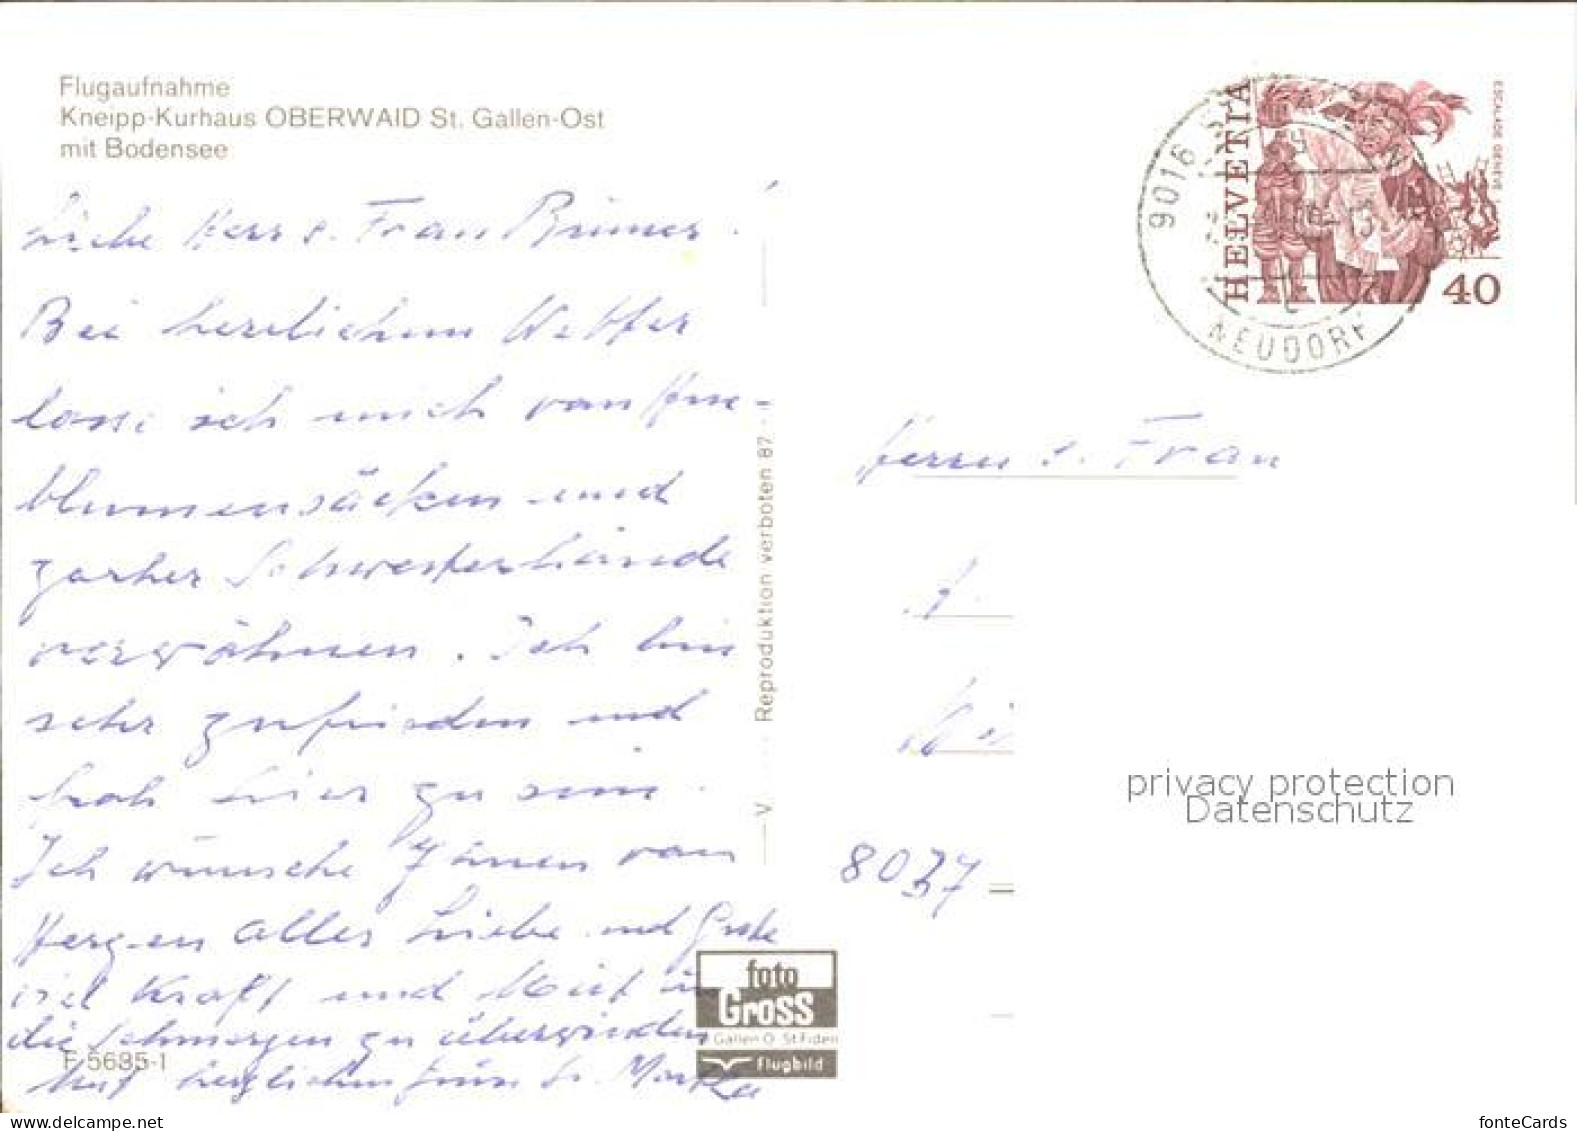 Flugaufnahme
Kneipp-Kurhaus OBERWAID St. Gallen-Ost
mit Bodensee
HELVETIA
ESCALADE GENÈVE
40
9016 ST. GALLEN
NEUDORF
Liebe Herr u. Frau !
Bei herrlichem Wetter
lasse ich mich von Heu-
blumensäcken und
zarter Schwesterhände
verwöhnen. Ich bin
sehr zufrieden und
froh hier zu sein.
Ich wünsche Ihnen von
Herzen alles Liebe und Gute
viel Kraft und Mut um
die Schmerzen zu überwinden
Mit herzlichem
Herrn u. Frau
8037
V Reproduktion verboten 87
foto
Gross
St. Gallen O. St. Fiden
Flugbild
F 5695-1
privacy protection
Datenschutz
fonteCards